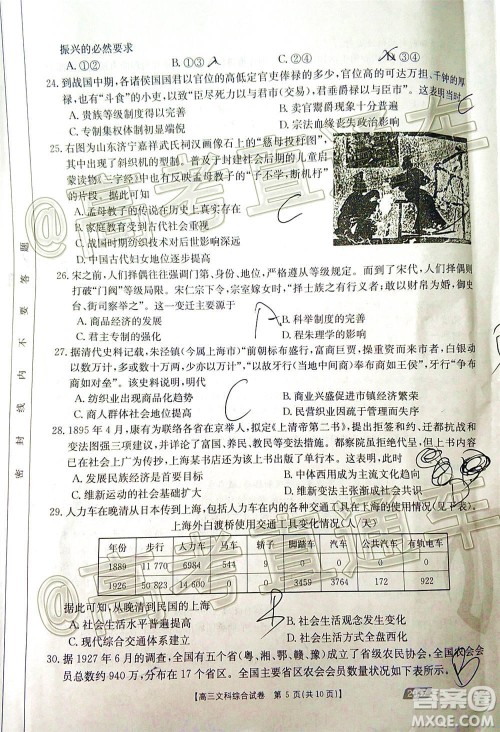 振兴的必然要求
A.①② B.①③ C.②④ D.③④
24.到战国中期,各诸侯国国君以官位的高低定官吏俸禄的多少,官位高的可达万担、千钟的厚
禄,也有“斗食”的小吏,以致“臣尽死力以与君市(交易),君垂爵禄以与臣市”。这表明当时
A.贵族等级制度瓦解 B.卖官鬻爵现象十分普遍
C.专制集权体制初现端倪 D.分封制度失去政治影响
25.右图为山东济宁嘉祥武氏祠汉画像石上的“慈母投杼图”,
其中出现了斜织机的型制。普及于封建社会后期的儿童启
蒙读物《三字经》中也有反映孟母教子的“子不学,断机杼”
的片段。这可用来说明
A.孟母教子的作用在历史上真实存在
B.家庭教育受中国古代社会重视
C.战国时期纺织技术有大的提升
D.中国古代妇女地位比较高
26.宋之前,人们择偶往往强调门第、身份、地位,严格遵从等级规范。而到了宋代,人们择偶则
打破“门阀”等级观念。宋仁宗下令,宗室嫁女时,“择士族之有行义者,敢以财冒为婚,御史
台、街司察举之”。这一变迁主要得益于
A.商品经济的发展 B.科举制度的完善
C.君主专制的强化 D.程朱理学的影响
27.据清代史料记载,朱泾镇(今属上海市)“前朝标布盛行,富商巨贾,操重资而来市者,白银动
以数万计,多或数十万两,少亦以万计”,“以故牙行(当地中间商)奉布商如王侯”,“牙行争布
商如对垒”。该史料说明
A.纺织业出现规模化趋势 B.商业兴盛促成市镇经济繁荣
C.商人群体社会地位提高 D.民营纺织业因美于服务而兴
28.1895年4月,康有为联络各省在京举人,拟定《上清帝第二书》,提出了拒和、迁都抗战和
变法图强三项建议,并对变法提出了富国、养民、教民等方案。都察院虽拒绝代呈,但内容
在社会上广泛流传,上海某书坊还以《公车上书记》为名刊刻发行。这反映出
A.发展民族经济的强烈要求 B.变法维新成为主流文化趋向
C.维新运动的发展与深入 D.社会改良思想的影响扩大
29.人力车在晚清从日本传到上海,下表为人力车和其他交通工具在上海的使用情况(见下表)。
上海外白渡桥使用交通工具变化情况(人/天)
年份 步行 人力车 马车 轿子 脚踏车 汽车 公共汽车 有轨电车
1889 11 770 6984 544 27 0 0 0 0
1926 50 823 14 600 0 0 3459 3764 172 922
据此可知,从晚清到民国的上海
A.社会生活水平普遍提高 B.社会生活观念发生变化
C.现代综合交通体系建立 D.社会生活方式出现变革
30.据1927年6月的调查,全国有五个(粤、湘、鄂、赣、豫)成立了省级农民协会,全国农会会员
总数约940万,分布在17个省区。全国主要省区农会会员数量状况如下图所示,
【高三文科综合试卷 第5页(共10页)】
密封线内不要答题
@高考直通车
答案圈
MXQE.COM